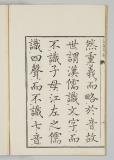 然重義而略於音故
世謂漢儒識文字而
不識子母江左之儒
識四聲而不識七音